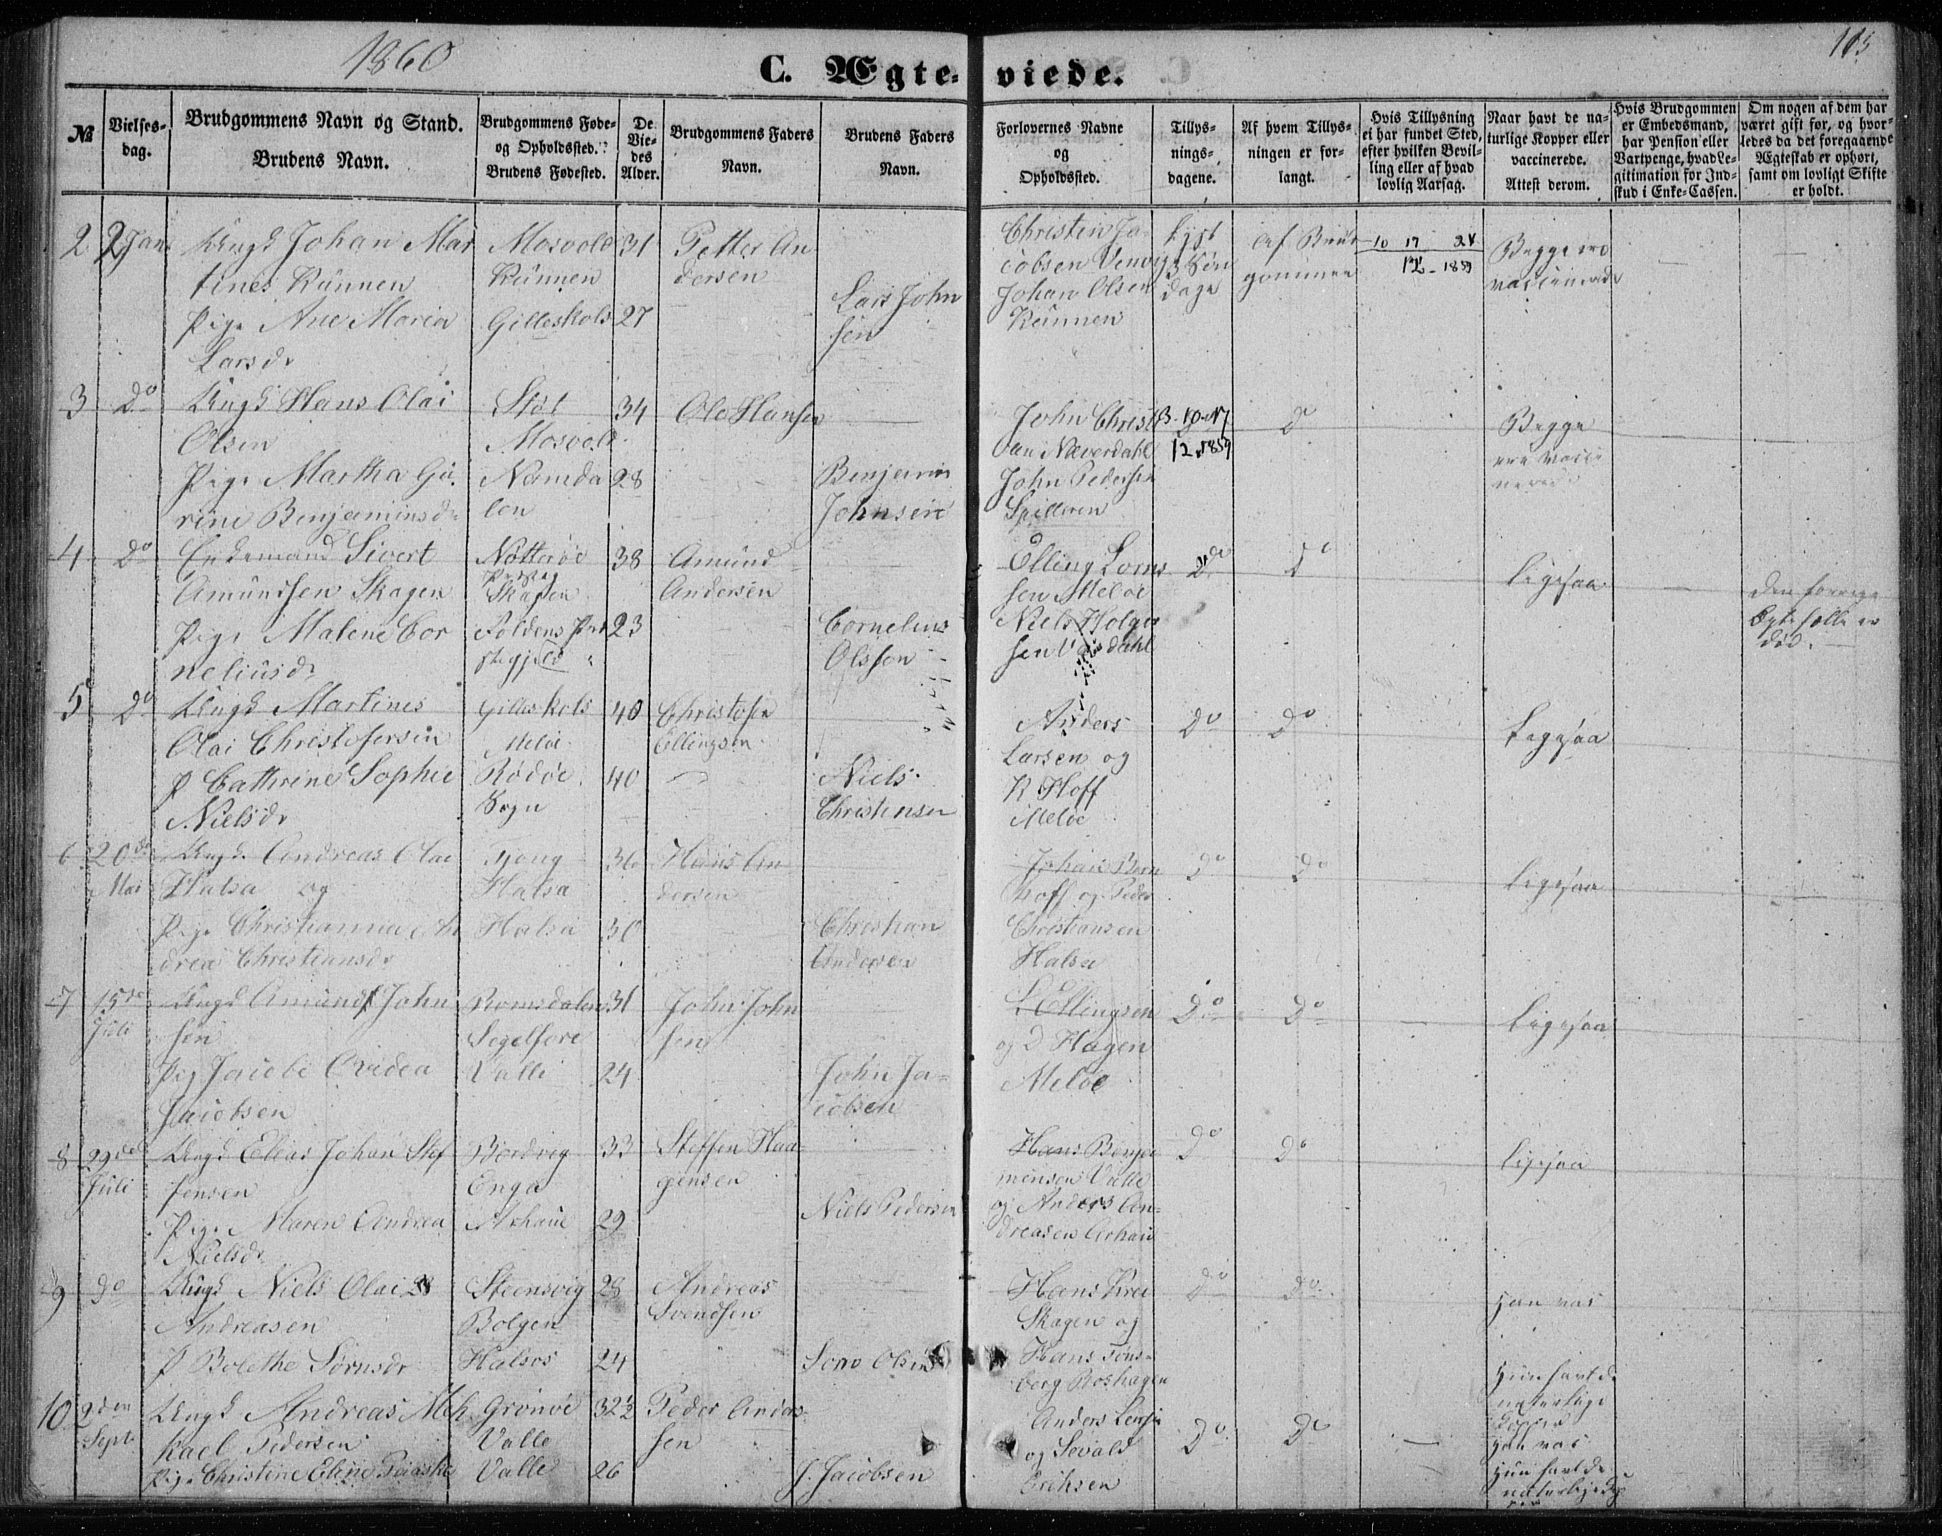 1860
C. Ægteviede.
113
№
Vielses-
dag.
Brudgommens Navn og Stand.
Brudens Navn.
Brudgommens Føde-
og Opholdssted.
Brudens Fødested.
De
Vie-
des
Alder.
Brudgommens Faders
Navn.
Brudens Faders
Navn.
Forlovernes Navne
og
Opholdssted.
Tillys-
nings-
dagene.
Af hvem Tillys-
ningen er for-
langt.
Hvis Tillysning
ei har fundet Sted,
efter hvilken Bevil-
ling eller af hvad
lovlig Aarsag.
Naar havt de na-
turlige Kopper eller
vaccinerede.
Attest derom.
Hvis Brudgommen
er Embedsmand,
har Pension eller
Vartpenge, hvad Le-
gitimation for Ind-
skud i Enke-Cassen.
Om nogen af dem har
været gift før, og hvor-
ledes da det foregaaende
Ægteskab er ophørt,
samt om lovligt Skifte
er holdt.
2
2 Jan
Ungk Johan Mar
tines Kunnen
Pige Ane Maria
Larsdr
Mosvold
Kunnen
Gilleskols
31
27
Petter An
dersen
Lars John
sen
Christen Ja-
cobsen
Johan Olsen
Kunnen
lyst
3 Søn
dage
af Brud
gommen
10 17 24
12 - 1859
Begge ere
vaccinerede
3
Do
Ungk Hans Olai
Olsen
Pige Martha Gu
rine Benjaminsdr
Støt
Mosvold
Namda
len
34
28
Ole Hansen
Benjamin
Johnsen
John Christi
an Næverdahl
John Pedersen
Spilderen
3 - 10 - 17
12 1859
Do
Begge
ere vacci
nered
4
Do
Enkemand Sivert
Amundsen Skagen
Pige Malene Cor
neliusdr
Nøtterøe
Skagen
Foldens Præ
stegjeld
38
23
Amund
Andersen
Cornelius
Olssen
Elling Lorns
sen Meløe
Niels Holger
sen
Do
Do
ligesaa
den forrige
Egtefælle er
død.
5
Do
Ungk Martines
Olai Christofersen
P Cathrine Sophie
Nielsdr
Gilleskols
Meløe
Rødøe
Sogn
40
40
Christofer
Ellingsen
Niels
Christensen
Anders
Larsen og
R Hoff
Meløe
Do
Do
Ligesaa
6
20de
Mai
Ungk. Andreas Olai
Halsa og
Pige Christianna An
drea Christiansdr
Tjong
Halsa
Halsa
36
30
Hans An
dersen
Christian
Andersen
Johan Bern
hoff og Peder
Christiansen
Halsa
Do
Do
ligesaa
7
15de
Juli
Ungk Amund John
sen
Pig Jacobe Ovidea
Jacobsen
Romsdalen
Segelfore
Valle
31
24
John John
sen
John Ja-
cobsen
L Ellingsen
og D Hagen
Meløe
Do
Do
ligesaa
8
29de
Juli
Ungk Elias Johan Stef
fensen
Pige Maren Andrea
Nielsdr
Bordvig
Enga
Arhaue
33
29
Steffen Haa-
gensen
Niels Pedersen
Hans Benja
minsen Valle
og Anders An-
dreasen Arhau
Do
Do
ligesaa
9
Do
Ungk Niels Olai
Andreasen
P Bolethe Sørnsdr
Steensvig
Bolgen
Halsos
28
24
Andreas
Svendsen
Sorn Olsen
Hans Krei
Skagen og
Hans Tøns-
berg Roshagen
Do
Do
han vac
hun havt de
naturlige
Kopper
10
2den
Sept
Ungk Andreas Mik
kael Pedersen
Pige Christine Eline
Grønøe
Valle
Valle
32½
26
Peder Anders-
sen
J. Jacobsen
Anders
og Sevald
Erichsen
Do
Do
han vac
hun havt de